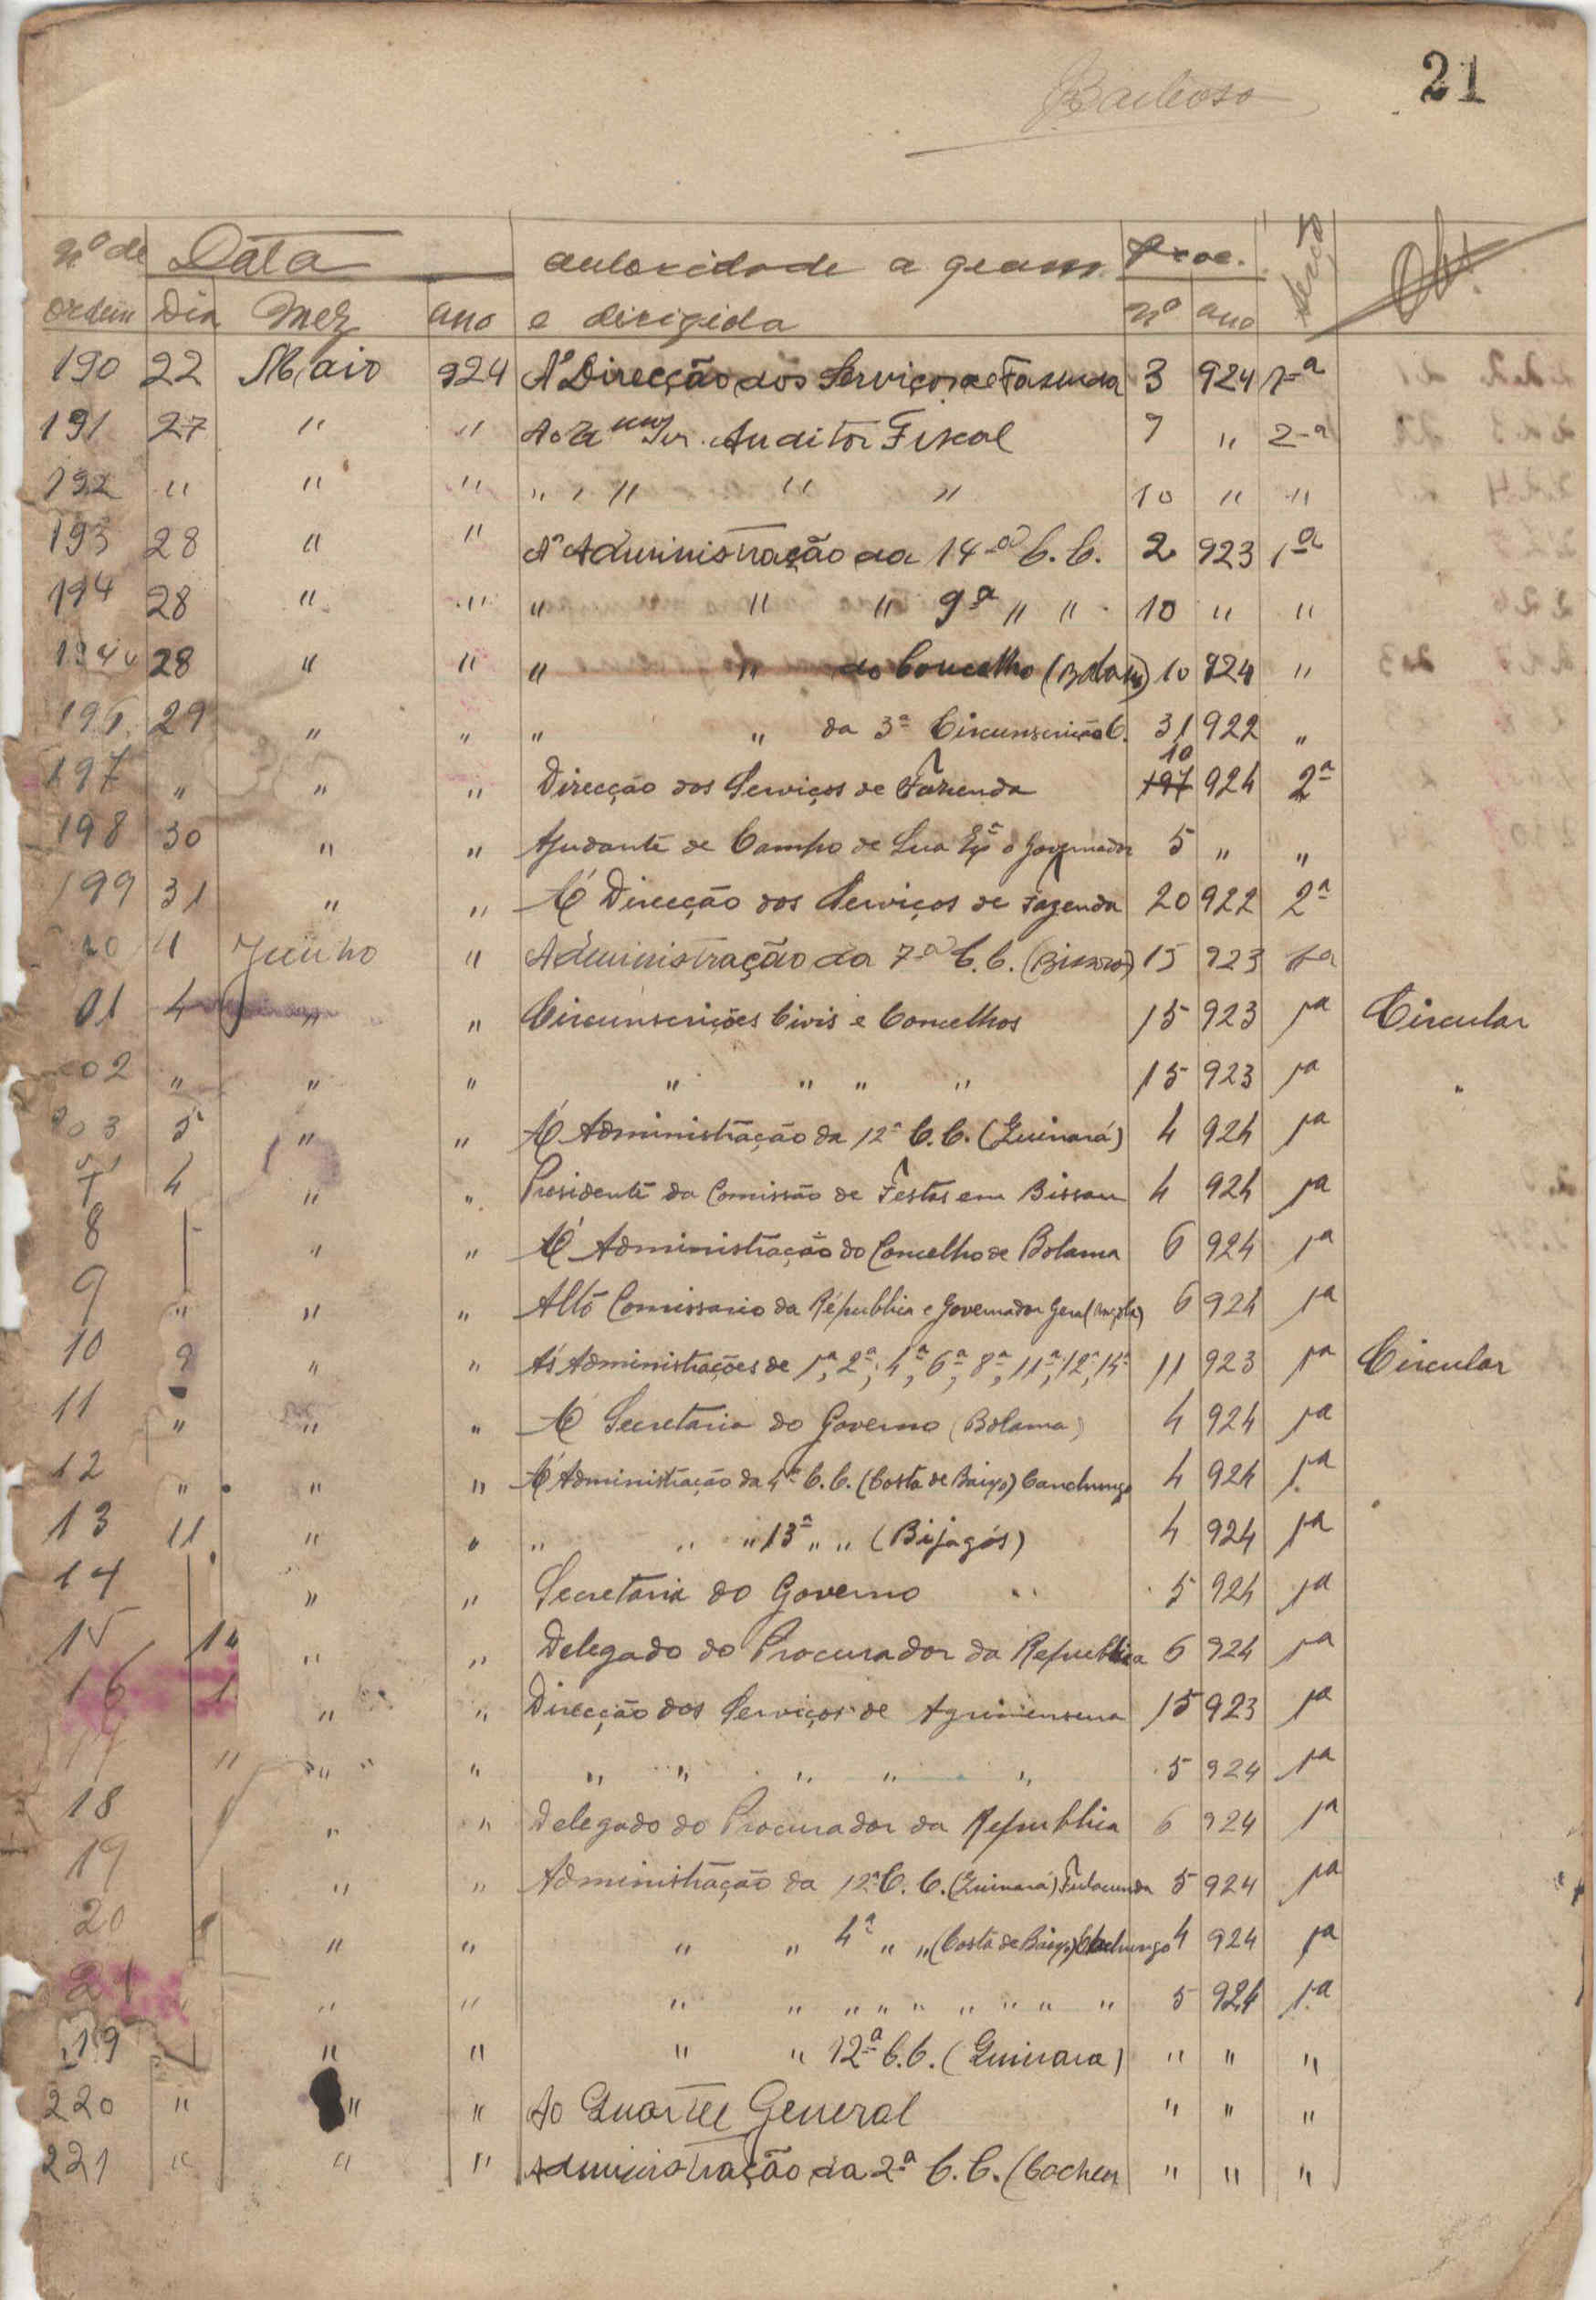 21
Barbosa
nº de Data autoridade a quem Proc. Secção Obs.
ordem Dia Mez ano e dirigida nº ano
190 22 Maio 924 Á Direcção dos Serviços de Fazenda 3 924 1ª
191 27 " " Ao Sr. Auditor Fiscal 7 " 2ª
192 " " " " " " " " 10 " "
193 28 " " Á Administração da 14ª C. C. 2 923 1ª
194 28 " " " " " 9ª " " 10 " "
28 " " " " do Concelho (Bolama) 10 924 "
196 29 " " " " da 3ª Circunscrição C. 31 922 "
197 " " " Direcção dos Serviços de Fazenda 197 10 924 2ª
198 30 " " Ajudante de Campo de Sua Exª o Governador 5 " "
199 31 " " Á Direcção dos Serviços de Fazenda 20 922 2ª
Junho " Administração da 7ª C. C. (Bissorã) 15 923 1ª
01 4 " " Circunscrições Civis e Concelhos 15 923 1ª Circular
02 " " " " " " " 15 923 1ª "
03 5 " " Á Administração da 12ª C. C. (Quinará) 4 924 1ª
4 " " Presidente da Comissão de Festas em Bissau 4 924 1ª
8 " " Á Administração do Concelho de Bolama 6 924 1ª
9 " " " Alto Comissario da Républica e Governador Geral (Angola) 6 924 1ª
10 9 " " Ás Administrações de 1ª, 2ª, 4ª, 6ª, 8ª, 11ª, 12ª, 14ª 11 923 1ª Circular
11 " " " Á Secretaria do Governo (Bolama) 4 924 1ª
12 " " " Á Administração da 4ª C. C. (Costa de Baixo) Canchungo 4 924 1ª
13 11 " " " " " 13ª " " (Bijagós) 4 924 1ª
14 " " Secretaria do Governo " 5 924 1ª
15 " " Delegado do Procurador da Republica 6 924 1ª
16 " " Direcção dos Serviços de Agrimensura 15 923 1ª
17 " " " " " " " " 5 924 1ª
18 " " Delegado do Procurador da Republica 6 924 1ª
19 " " Administração da 12ª C. C. (Quinará) Fulacunda 5 924 1ª
20 " " " " 4ª " " (Costa de Baixo) Canchungo 4 924 1ª
21 " " " " " " " " " " " 5 924 1ª
19 " " " " 12ª C. C. (Quinara) " " "
220 " " " Ao Quartel General " " "
221 " " " Administração da 2ª C. C. (Cacheu " " "